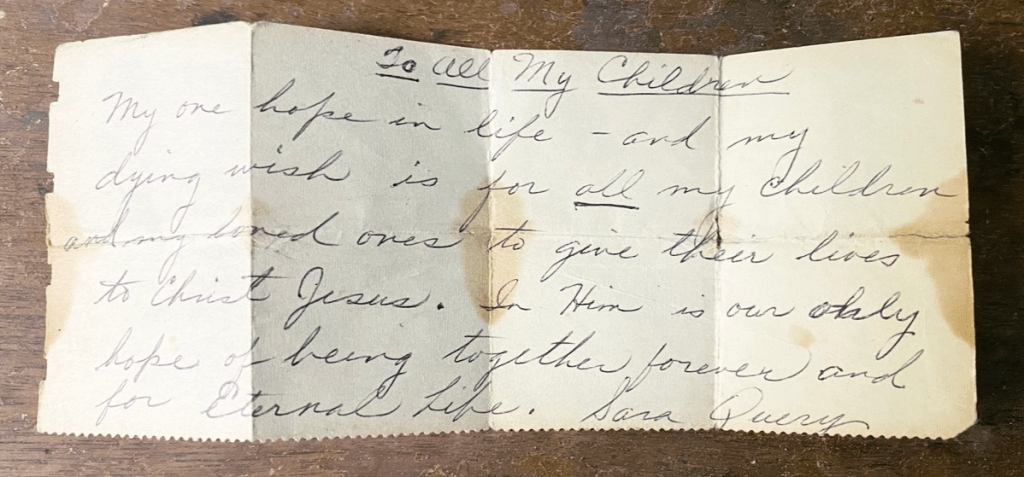 To All My Children
My one hope in life - and my
dying wish is for all my children
and my loved ones to give their lives
to Christ Jesus. In Him is our only
hope of being together forever and
for Eternal Life. Sara Query